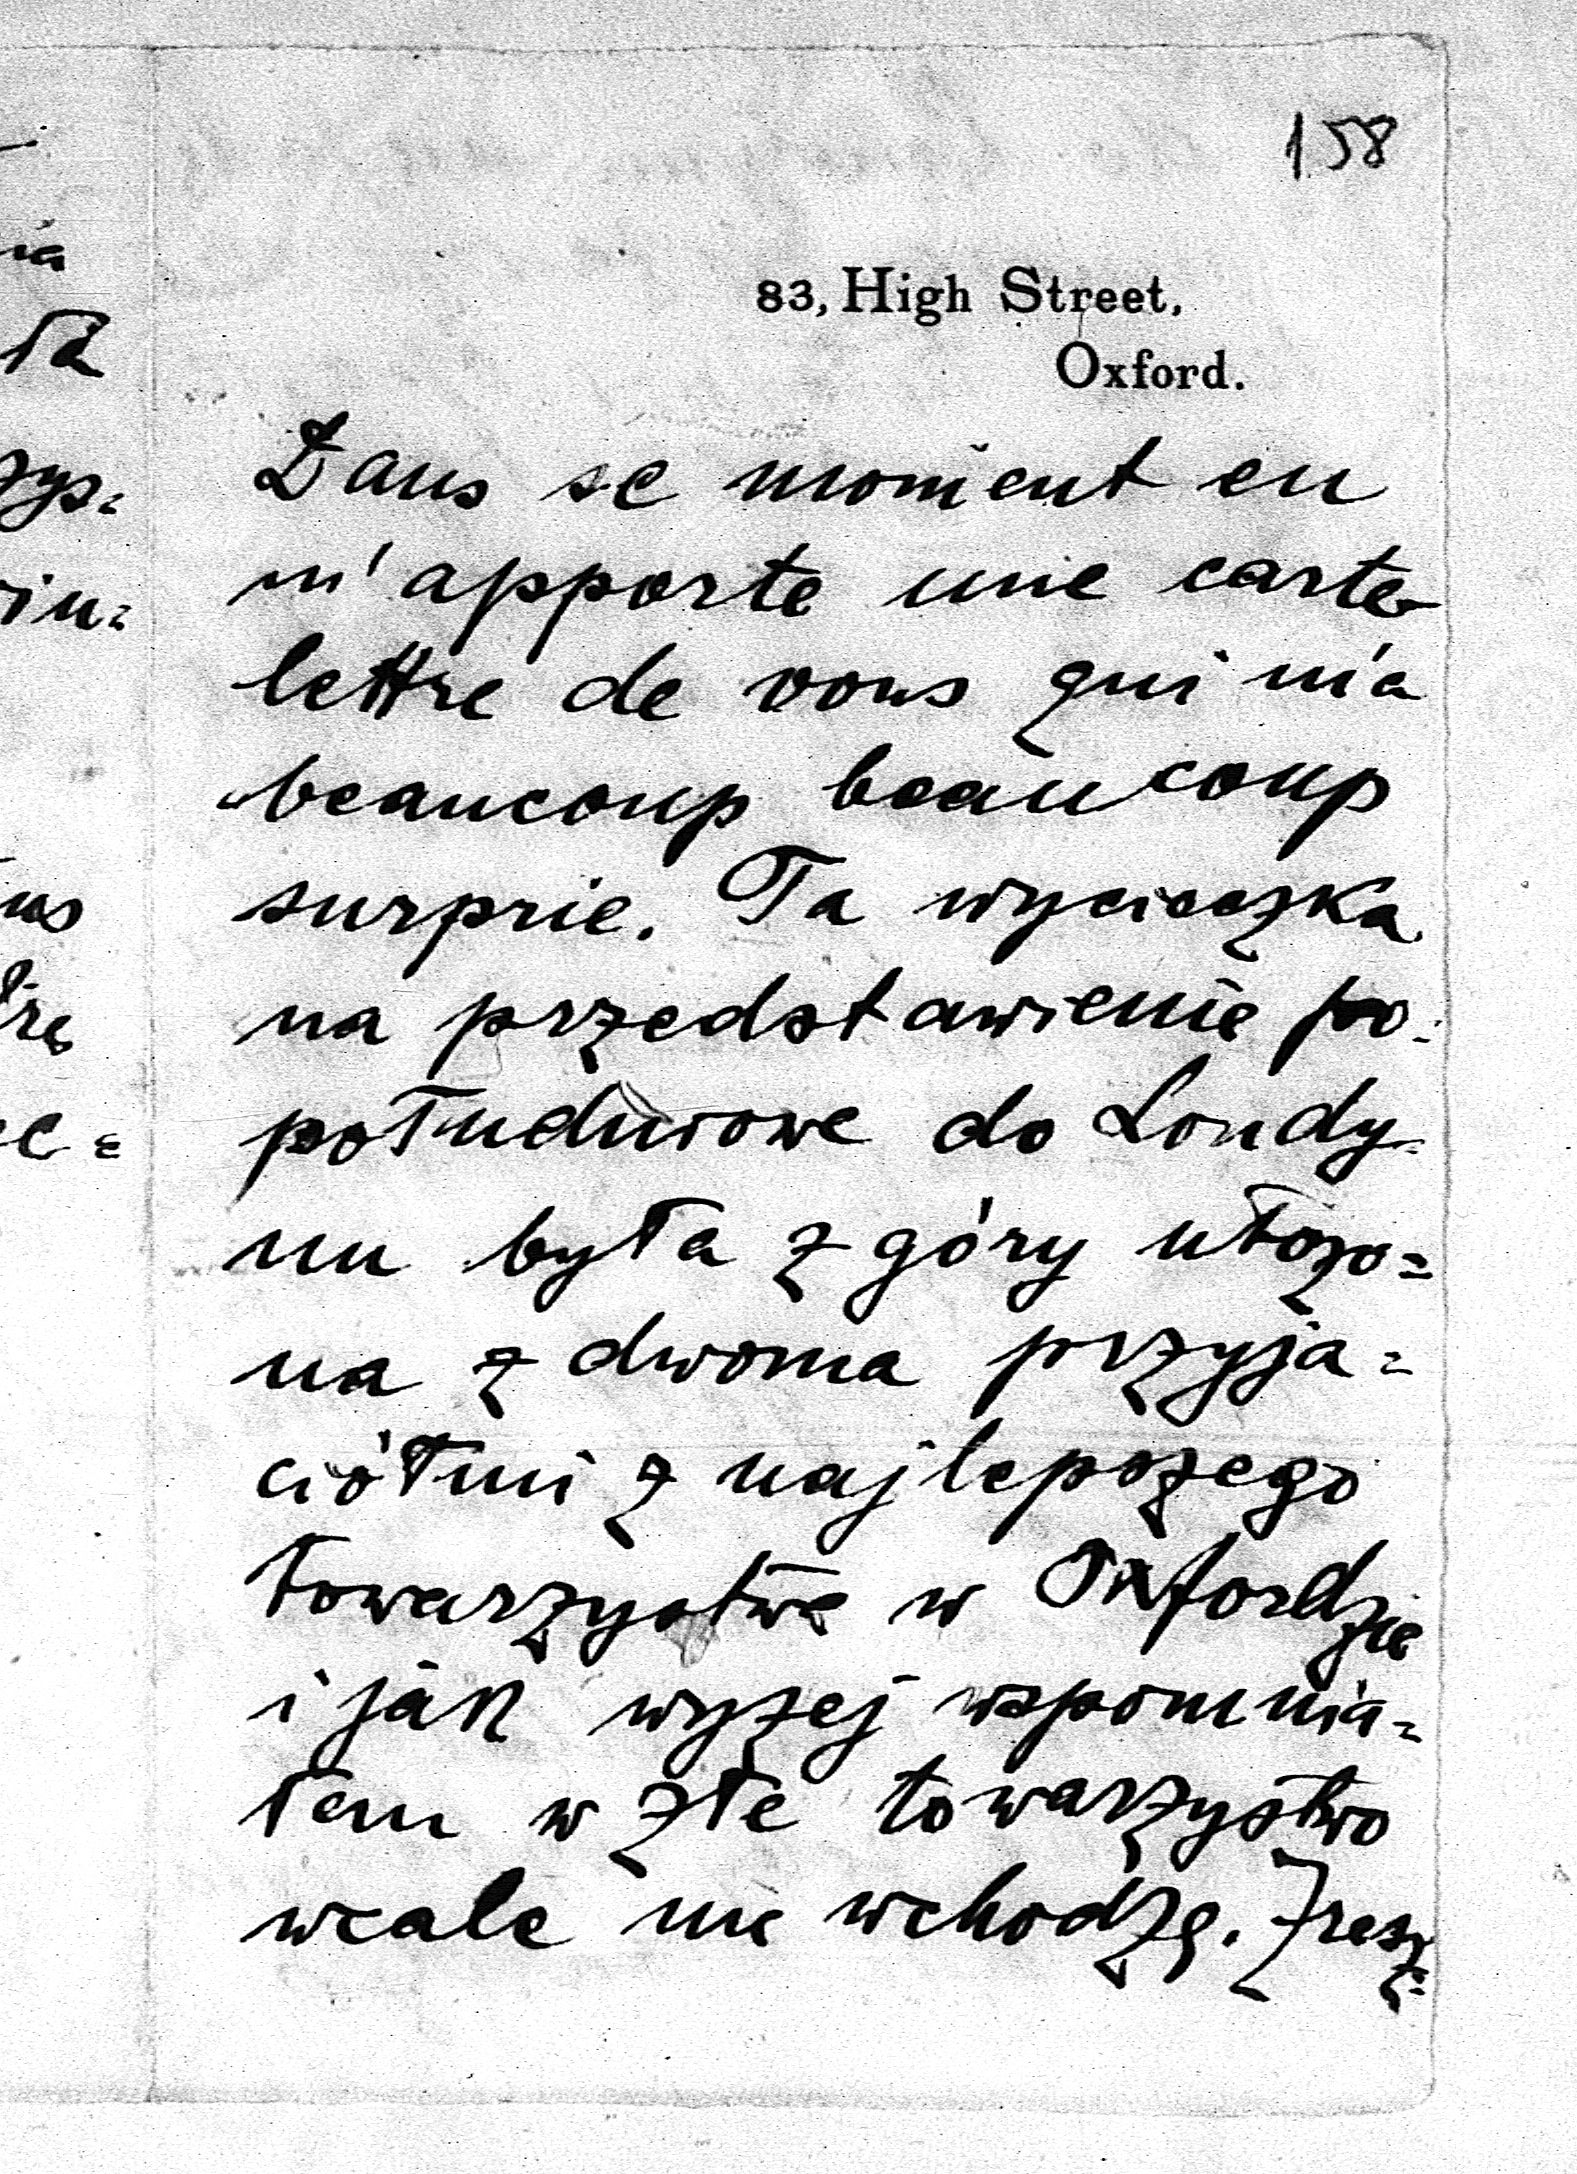 158
83, High Street,
Oxford.
Dans se moment en
m'apporte une carte-
lettre de vous qui m'a
beaucoup beaucoup
surprie. Ta wycieczka
na przedstawienie po-
południowe do Londy-
nu była z góry ułożo=
na z dwoma przyja=
ciółmi z najlepszego
towarzystwa w Oxfordzie
i jak wyżej wspomnia=
łem w złe towarzystwo
wcale nie wchodzę. Zresz=